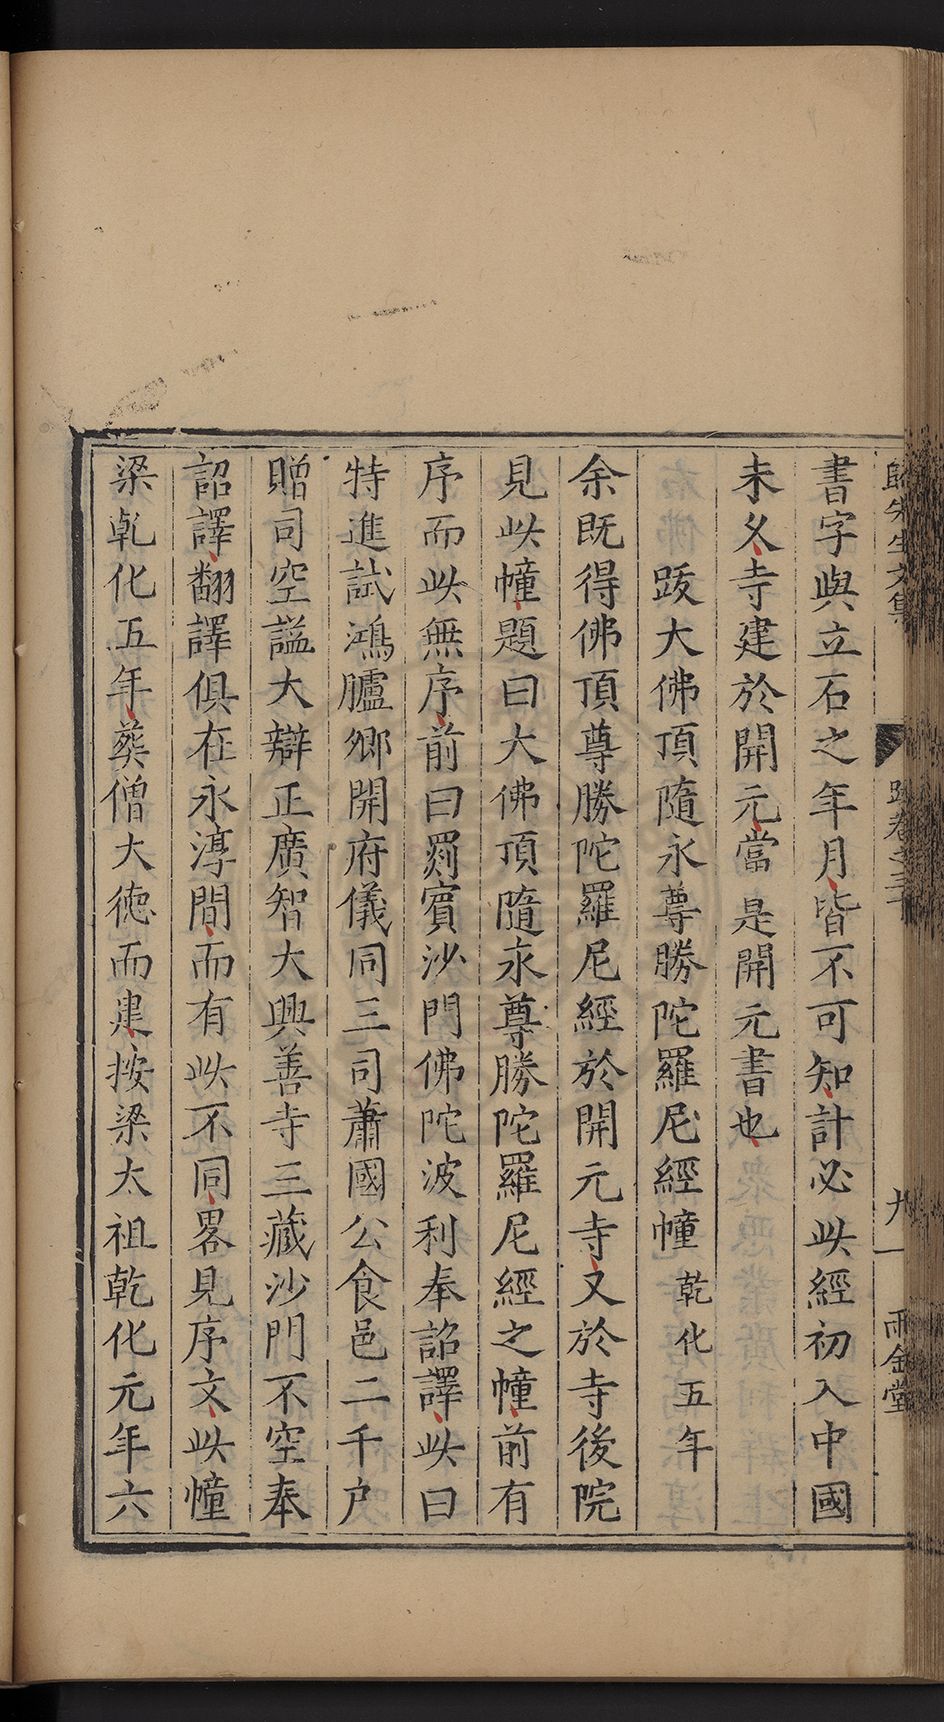 歸先生文集 跋卷之二十 九一 雨金堂
書字與立石之年月皆不可知計必此經初入中國
未久寺建於開元當是開元書也
跋大佛頂隨永尊勝陀羅尼經幢 乾化五年
余既得佛頂尊勝陀羅尼經於開元寺又於寺後院
見此幢題曰大佛頂隨永尊勝陀羅尼經之幢前有
序而此無序前曰罽賓沙門佛陀波利奉詔譯此曰
特進試鴻臚卿開府儀同三司蕭國公食邑二千户
贈司空謚大辯正廣智大興善寺三藏沙門不空奉
詔譯翻譯俱在永淳間而有此不同畧見序文此幢
梁乹化五年葬僧大德而建按梁太祖乾化元年六